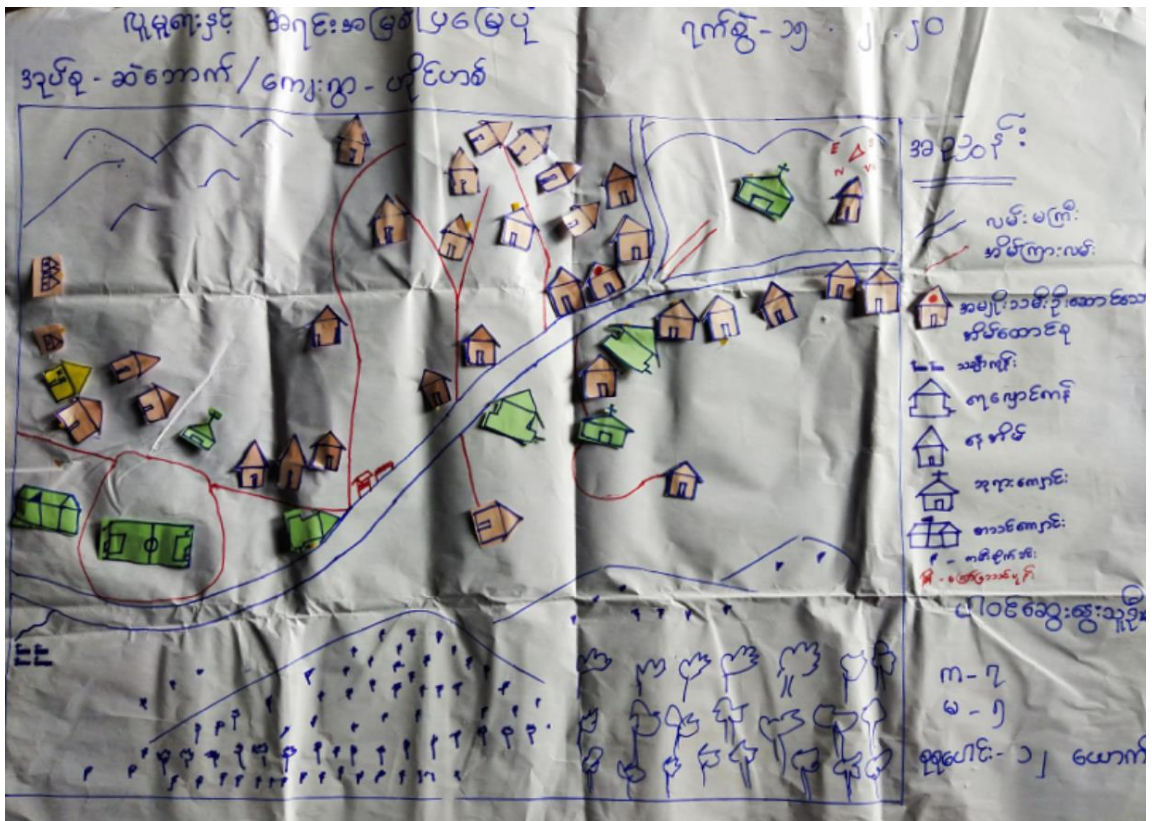 လူမှုရေးနှင့် အရင်းအမြစ်ပြမြေပုံ
ရက်စွဲ - ၁၅ . ၂ . ၂၀
အုပ်စု - ဆဲဘောက် / ကျေးရွာ - ဟိုင်ဟစ်
အညွှန်း
လမ်းမကြီး
အိမ်ကြားလမ်း
အမျိုးသမီးဦးဆောင်သော
အိမ်ထောင်စု
သချိုင်း
ရေလှောင်ကန်
နေအိမ်
ဘုရားကျောင်း
စာသင်ကျောင်း
ပါဝင်ဆွေးနွေးသူဦး
က - ၇
မ - ၅
စုစုပေါင်း - ၁၂ ယောက်